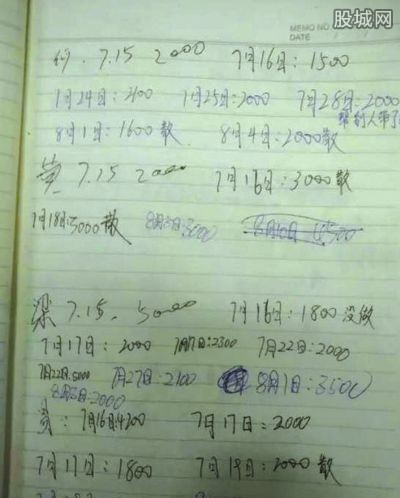 股城网
MEMO NO.
DATE
何. 7.15 2000 7月16日: 1500
7月24日: 2100 7月25日: 2000 7月28日: 2000
帮别人带了
8月1日: 1600散 8月4日: 2000散
黄 7.15 2000 7月16日: 3000散
7月18日: 5000散 8月3日: 3000
梁 7.15. 50000 7月16日: 1800 没做
7月17日: 2000 7月17日: 2300 7月22日: 2000
7月22日: 5000 7月27日: 2100 8月1日: 3500
8月3日: 2000
7月16日: 4200 7月17日: 2000
7月17日: 1800 7月19日: 2000 散